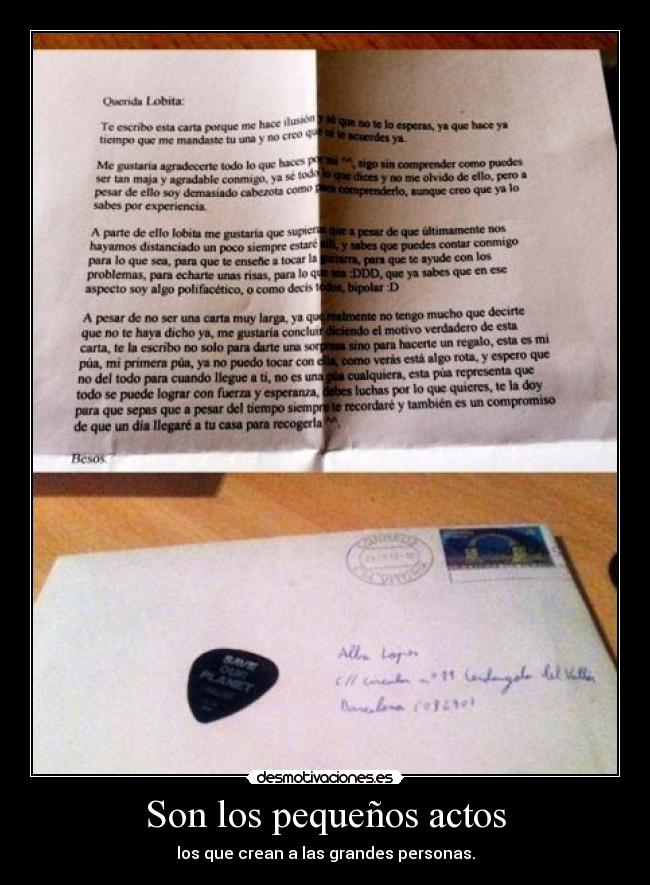 Querida Lobita:
Te escribo esta carta porque me hace ilusión y sé que no te lo esperas, ya que hace ya
tiempo que me mandaste tu una y no creo que ni te acuerdes ya.
Me gustaría agradecerte todo lo que haces por mi ^^, sigo sin comprender como puedes
ser tan maja y agradable conmigo, ya sé todo lo que dices y no me olvido de ello, pero a
pesar de ello soy demasiado cabezota como para comprenderlo, aunque creo que ya lo
sabes por experiencia.
A parte de ello lobita me gustaría que supieras que a pesar de que últimamente nos
hayamos distanciado un poco siempre estaré allí, y sabes que puedes contar conmigo
para lo que sea, para que te enseñe a tocar la guitarra, para que te ayude con los
problemas, para echarte unas risas, para lo que sea :DDD, que ya sabes que en ese
aspecto soy algo polifacético, o como decís todos, bipolar :D
A pesar de no ser una carta muy larga, ya que realmente no tengo mucho que decirte
que no te haya dicho ya, me gustaría concluir diciendo el motivo verdadero de esta
carta, te la escribo no solo para darte una sorpresa sino para hacerte un regalo, esta es mi
púa, mi primera púa, ya no puedo tocar con ella, como verás está algo rota, y espero que
no del todo para cuando llegue a ti, no es una púa cualquiera, esta púa representa que
todo se puede lograr con fuerza y esperanza, debes luchas por lo que quieres, te la doy
para que sepas que a pesar del tiempo siempre te recordaré y también es un compromiso
de que un día llegaré a tu casa para recogerla ^^.
Besos.
CORREOS
VITORIA
SAVE
OUR
PLANET
Alba Lopez
c// circular nº 11 Cerdanyola del Vallès
Barcelona (08290)
desmotivaciones.es
Son los pequeños actos
los que crean a las grandes personas.